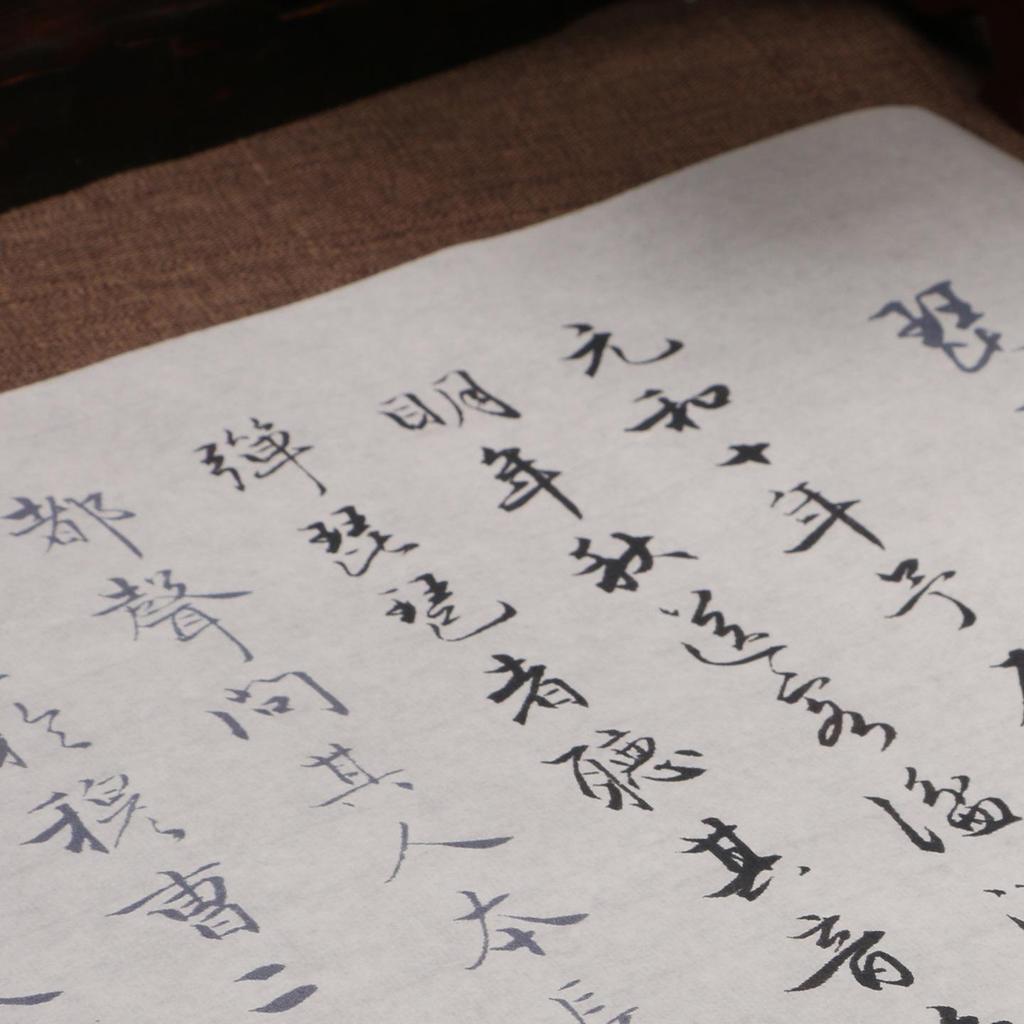 琵
元和十年予
明年秋送客湓
彈琵琶者聽其音
都聲問其人本
於穆曹二